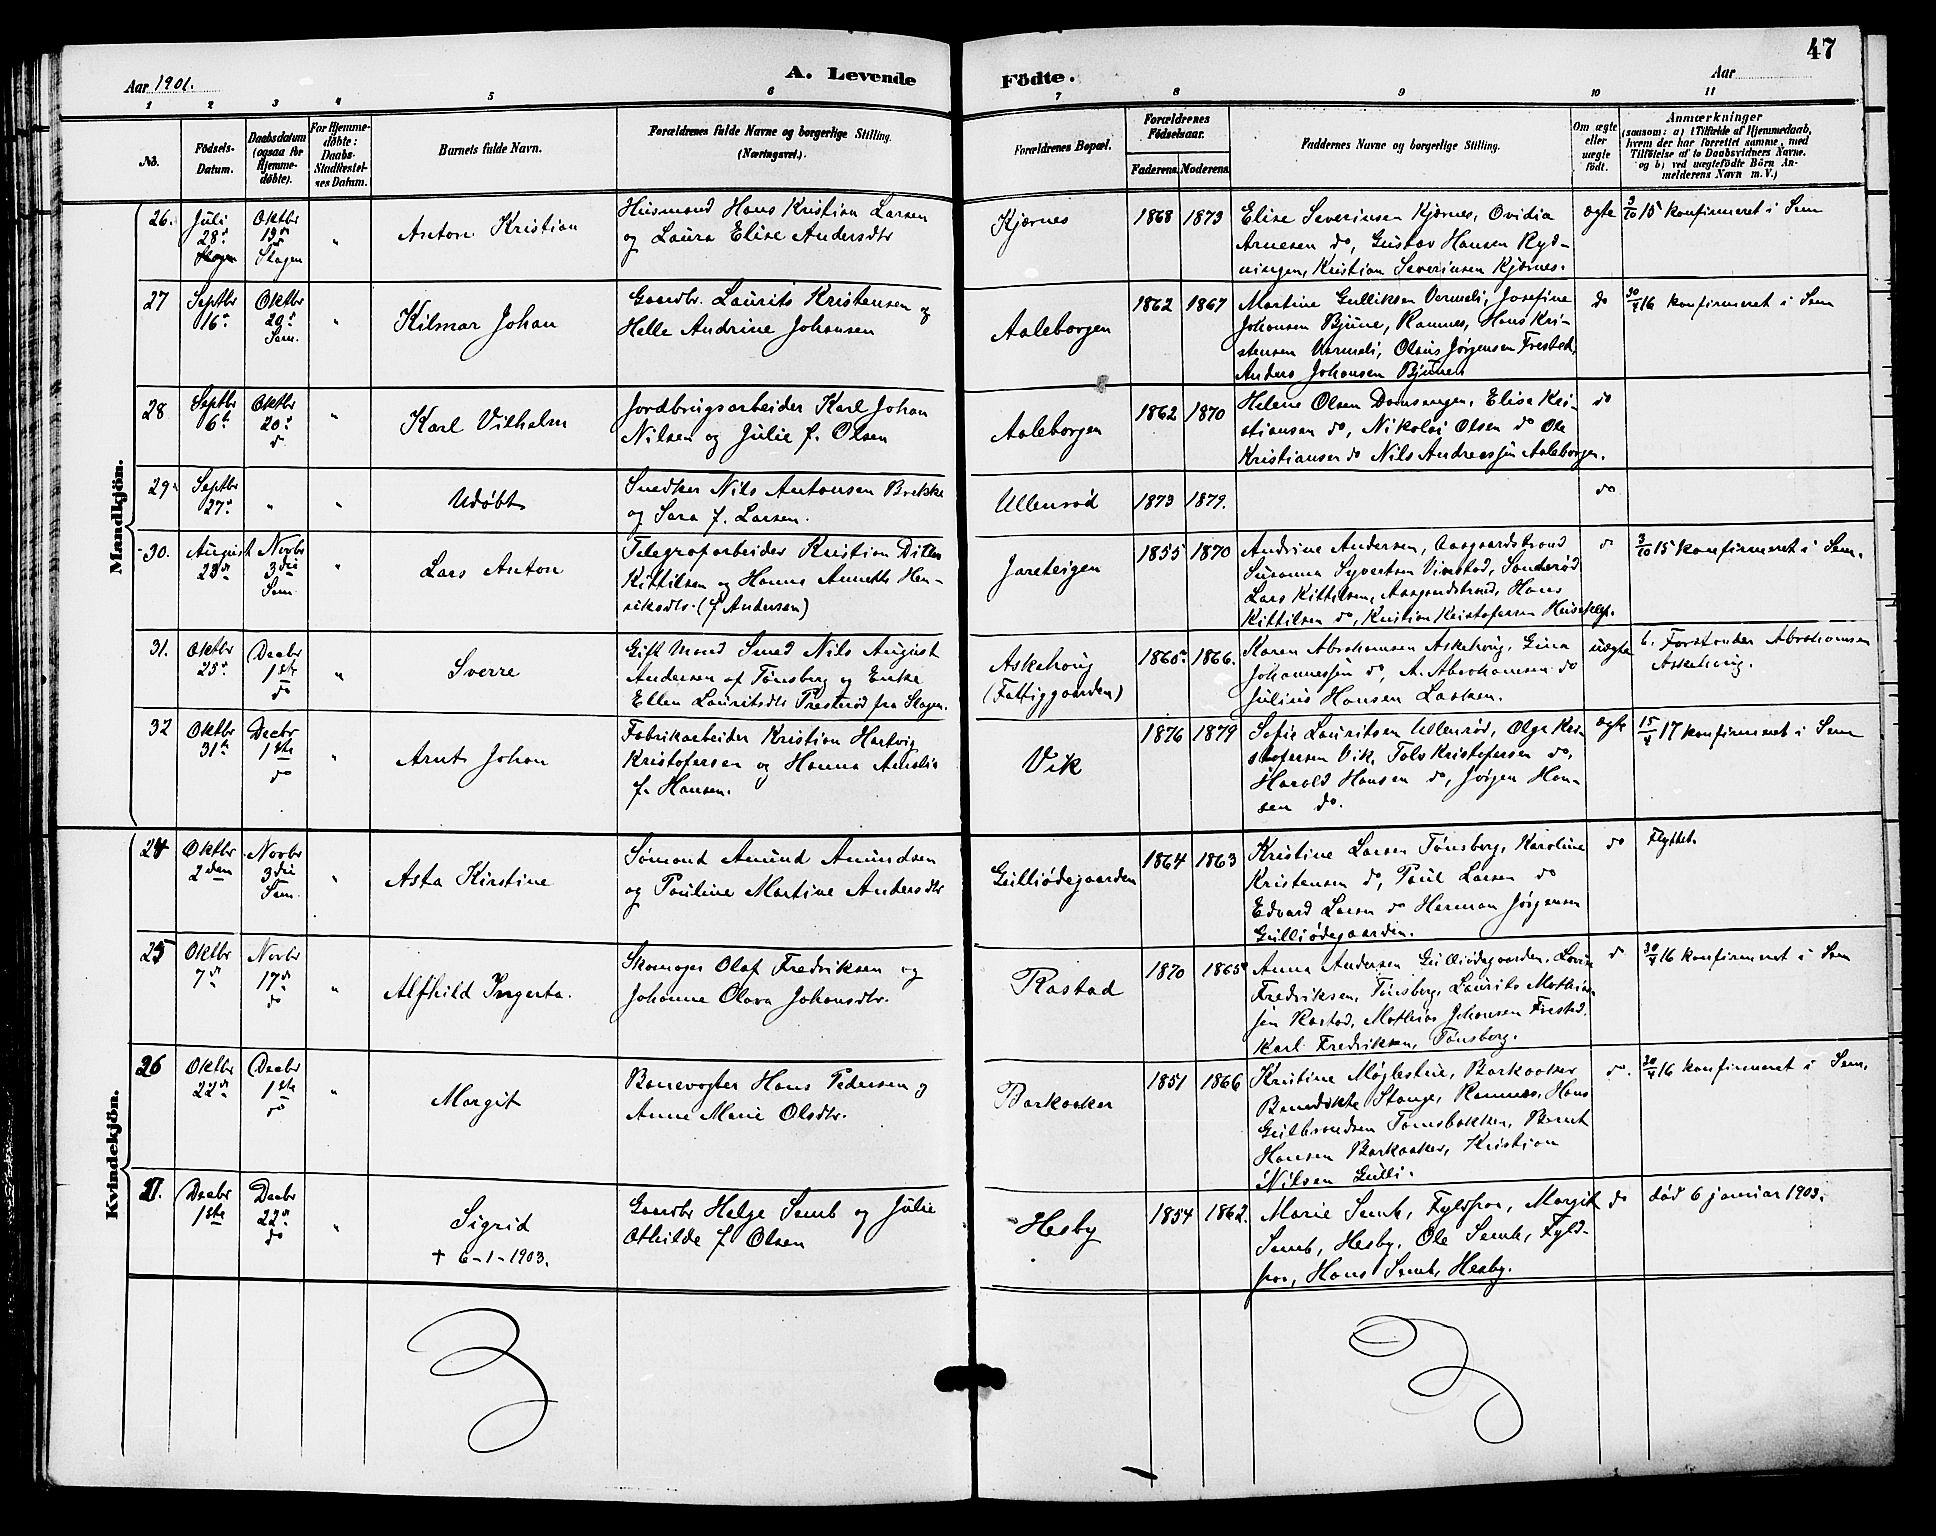 47
Aar 1901.
A. Levende Fødte.
Aar
1 2 3 4 5 6 7 8 9 10 11
No.
Fødsels-
Datum.
Daabsdatum
(ogsaa for
Hjemme-
døbte).
For Hjemme-
døbte:
Daabs-
Stadfæstel-
ses Datum.
Barnets fulde Navn.
Forældrenes fulde Navne og borgerlige Stilling.
(Næringsvei.)
Forældrenes Bopæl.
Forældrenes
Fødselsaar.
Faderens. Moderens.
Faddernes Navne og borgerlige Stilling.
Om ægte
eller
uægte
født.
Anmærkninger
(saasom: a) i Tilfælde af Hjemmedaab,
hvem der har forrettet samme, med
Tilføielse af to Daabsvidners Navne.
og b) ved uægtefødte Børn An-
melderens Navn m. V.)
Mandkjøn.
26.
Juli
28de
Slagen
Oktbr
13de
Slagen
"
Anton Kristian
Husmand Hans Kristian Larsen
og Laura Elise Andersdtr
Kjærnes
1868 1873
Elise Severinsen Kjærnes, Ovidia
Arnesen do, Gustav Hansen Ryd-
ningen, Kristian Severinsen Kjærnes.
ægte
3/10 15 konfirmeret i Sem
27
Septbr
16de
Oktbr
20de
Sem.
"
Hilmar Johan
Gaardbr. Laurits Kristensen og
Helle Andrine Johansen
Aaleborgen
1862 1867
Martine Gulliksen Vermeli, Josefine
Johansen Bjune, Ramnes, Hans Kri-
stensen Vermeli, Olaus Jørgensen Frestad,
Anders Johansen Bjunen
do
30/4 16 konfirmeret i Sem
28
Septbr
6te
Oktbr
20de
do
"
Karl Vilhelm
Jordbrugsarbeider Karl Johan
Nilsen og Julie f. Olsen
Aaleborgen
1862 1870
Helene Olsen Domsengen, Elise Kri-
stiansen do, Nikolai Olsen do Ole
Kristiansen do Nils Andreassen Aaleborgen.
do
29
Septbr
27de
"
"
Udøbt
Snedker Nils Antonsen Brekke
og Sara f. Larsen.
Ullensrød
1873 1879.
do
30.
August
23de
Novbr
3die
Sem.
"
Lars Anton
Telegrafarbeider Kristian Ditlev
Kittilsen og Hanna Annette Hen-
riksdtr. (f Andersen)
Jareteigen
1855 1870
Andrine Andersen, Aasgaardstrand
Susanna Syvertsen Vinestad, Sanderød
Lars Kittilsen, Aasgaardstrand, Hans
Kittilsen do, Kristian Kristofersen Huseklep.
do
3/10 15 konfirmeret i Sem.
31.
Oktbr
25de
Decbr
1ste
do
"
Sverre
Gift Mand Smed Nils August
Andersen af Tønsberg og Enke
Ellen Lauritsdtr Presterød fra Slagen.
Askehoug
(Fattiggaarden)
1865 1866.
Karen Abrahamsen Askehoug, Gina
Johannessen do, A. Abrahamsen do
Julius Hansen Lasken.
uægte
b. Forstander Abrahamsen
Askehoug.
32
Oktbr
31te
Decbr
1ste
do
"
Arnt Johan
Fabrikarbeider Kristian Hartvig
Kristofersen og Hanna Amalia
f. Hansen.
Vik
1876 1879
Sofie Lauritsen Ullensrød, Olga Kri-
stofersen Vik, Tolv Kristofersen do,
Harald Hansen do, Jørgen Han-
sen do.
ægte
15/4 17 konfirmeret i Sem
Kvindekjøn.
24
Oktbr
2den
Novbr
3die
Sem.
"
Asta Kirstine
Sømand Amund Amundsen
og Pauline Martine Andersdtr
Gulliødegaarden
1864 1863
Kristine Larsen Tønsberg, Karoline
Kristensen do, Paul Larsen do
Edvard Larsen do Herman Jørgensen
Gulliødegaarden.
do
Flyttet.
25
Oktbr
7de
Novbr
17de
do
"
Alfhild Ingerta.
Skomager Olaf Fredriksen og
Johanne Olava Johansdtr.
Rastad
1870 1865
Anna Andersen Gulliødegaarden, Lovise
Fredriksen, Tønsberg, Laurits Mathias-
sen Rastad, Mathias Johansen Frestad.
Karl Fredriksen, Tønsberg.
do
30/4 16 konfirmeret i Sem
26
Oktbr
22de
Decbr
1ste
do
"
Margit
Banevogter Hans Pedersen og
Anne Marie Olsdtr.
Barkaaker
1851 1866
Kristine Møglestue, Barkaaker
Benedikte Stange, Ramnes, Hans
Gulbrandsen Tømsbakken, Bernt
Hansen Barkaaker, Kristian
Nilsen Gulli.
do.
30/4 16 konfirmeret i Sem.
27.
Decbr
1ste
Decbr
22de
do
"
Sigrid
† 6-1-1903.
Gaardbr Helge Semb og Julie
Othilde f Olsen
Hesby
1854 1862.
Marie Semb, Fyldpaa, Margit
Semb, Hesby, Ole Semb, Fyld-
paa, Hans Semb, Hesby.
do
død 6 januar 1903.